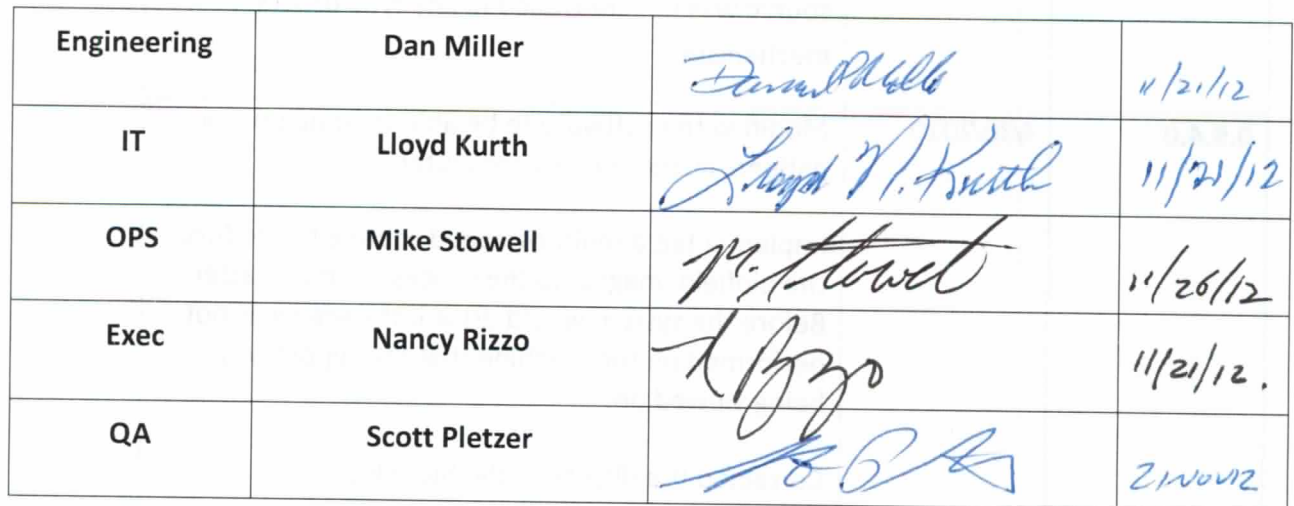 Engineering Dan Miller 11/21/12
IT Lloyd Kurth Lloyd N. Kurth 11/21/12
OPS Mike Stowell M. Stowell 11/26/12
Exec Nancy Rizzo N Rizzo 11/21/12.
QA Scott Pletzer 21NOV12